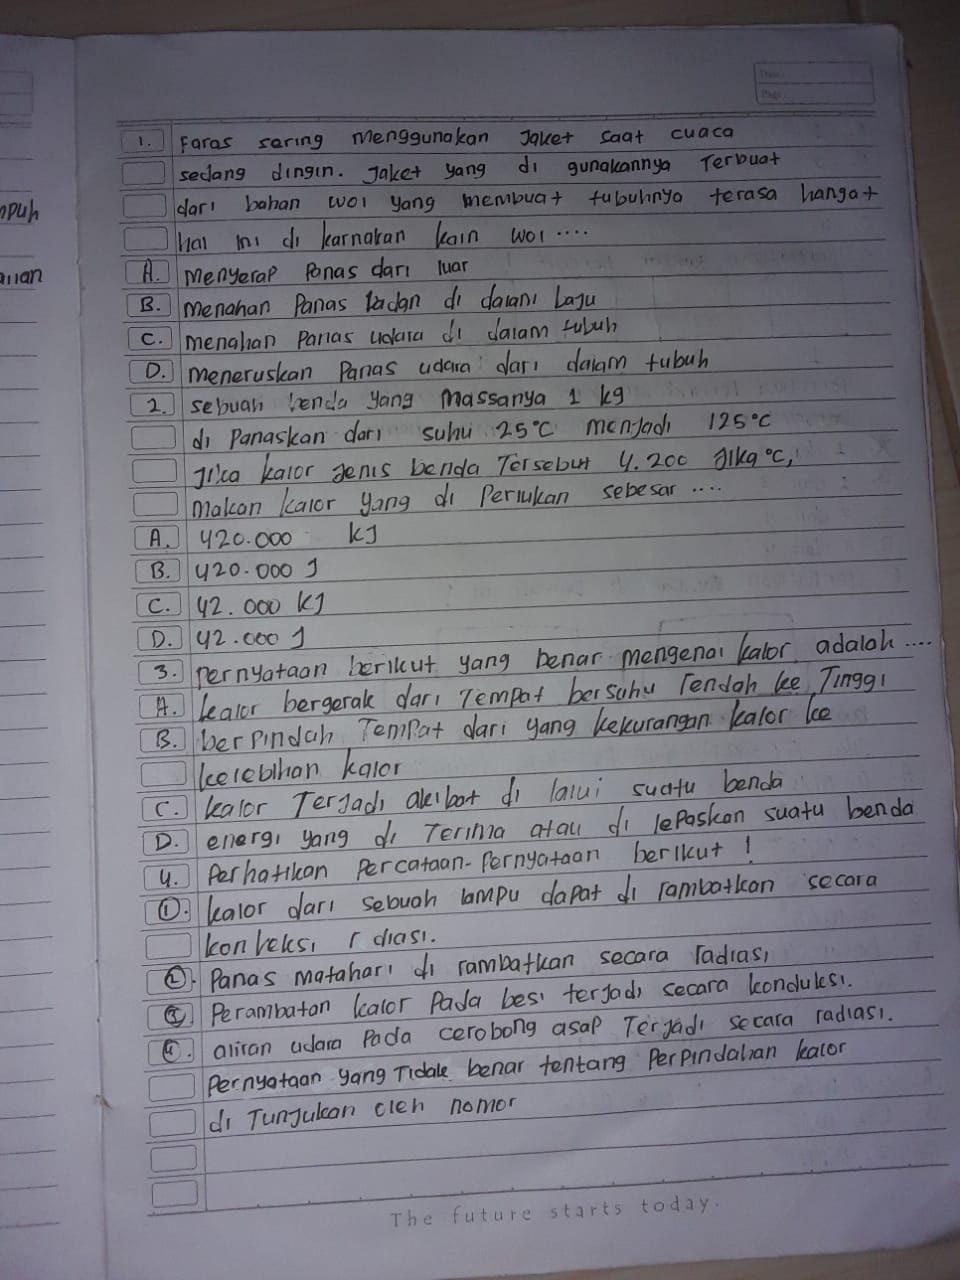 Date:
Page:
npuh
aian
1. Faras sering menggunakan Jaket saat cuaca
sedang dingin. Jaket yang di gunakannya Terbuat
dari bahan wol yang membuat tubuhnya terasa hangat
Hal ini di karnakan kain wol ....
A. menyerap Panas dari luar
B. menahan Panas badan di dalam baju
C. menahan Panas udara di dalam tubuh
D. meneruskan Panas udara dari dalam tubuh
2. sebuah benda yang Massanya 1 kg
di Panaskan dari suhu 25°C menjadi 125°C
Jika kalor Jenis benda Tersebut 4.200 J/kg°C,
Makan kalor yang di Perlukan sebesar ....
A. 420.000 kJ
B. 420.000 J
C. 42.000 KJ
D. 42.000 J
3. Pernyataan berikut yang benar mengenai kalor adalah ....
A. kalor bergerak dari Tempat bersuhu rendah ke Tinggi
B. berpindah Tempat dari yang kekurangan kalor ke
kelebihan kalor
C. kalor Terjadi akibat di lalui suatu benda
D. energi yang di Terima atau di lepaskan suatu benda
4. Perhatikan Percataan-Pernyataan berikut !
①. kalor dari sebuah lampu dapat di rambatkan secara
konveksi r diasi.
②. Panas matahari di rambatkan secara radiasi
③ Perambatan kalor Pada besi terjadi secara konduksi.
④. aliran udara Pada cerobong asap Terjadi secara radiasi.
Pernyataan yang Tidak benar tentang Perpindahan kalor
di Tunjukan oleh nomor
The future starts today.